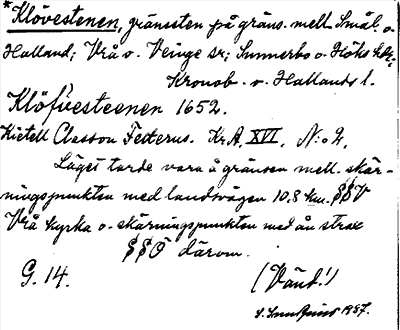 * Klövestenen, gränssten på gräns. mell. Smål. o.
Halland; Vrå o. Veinge sr; Sunnerbo o. Höks hdr;
Kronob. o. Hallands l.
Klöfvesteenen 1652.
Kietell Classon Kr. A XVI, N:o 2.
Läget torde vara å gränsen mell. skär-
ningspunkten med landsvägen 10,8 km. SSV
Vrå kyrka o. skärningspunkten med ån strax
SSO därom.
G. 14. (Vänd!)
1937.